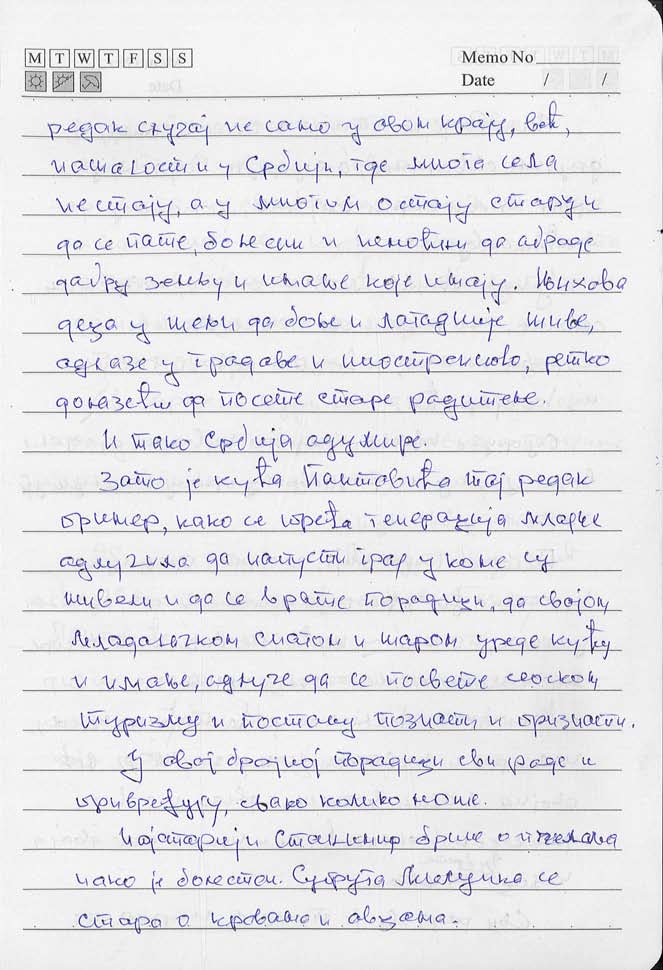 M T W T F S S
Memo No
Date / /
редак случај не само у овом крају, већ,
нашалост и у Србији, где многа села
нестају, а у многим остају старци
да се пате, болесни и немоћни да обраде
добру земљу и имање које имају. Њихова
деца у жељи да боље и лагодније живе,
одлазе у градове и иностранство, ретко
долазећи да посете старе родитеље.
И тако Србија одумире.
Зато је кућа Пантовића тај редак
пример, како се трећа генерација млађе
одлучила да напусти град у коме су
живели и да се врате породици, да својом
младалачком снагом и жаром уреде кућу
и имање, одлуче да се посвете сеоском
туризму и постану познати и признати.
У овој бројној породици сви раде и
привређују, свако колико може.
Најстарији Станимир брине о пчелама
иако је болестан. Супруга Милунка се
стара о кравама и овцама.